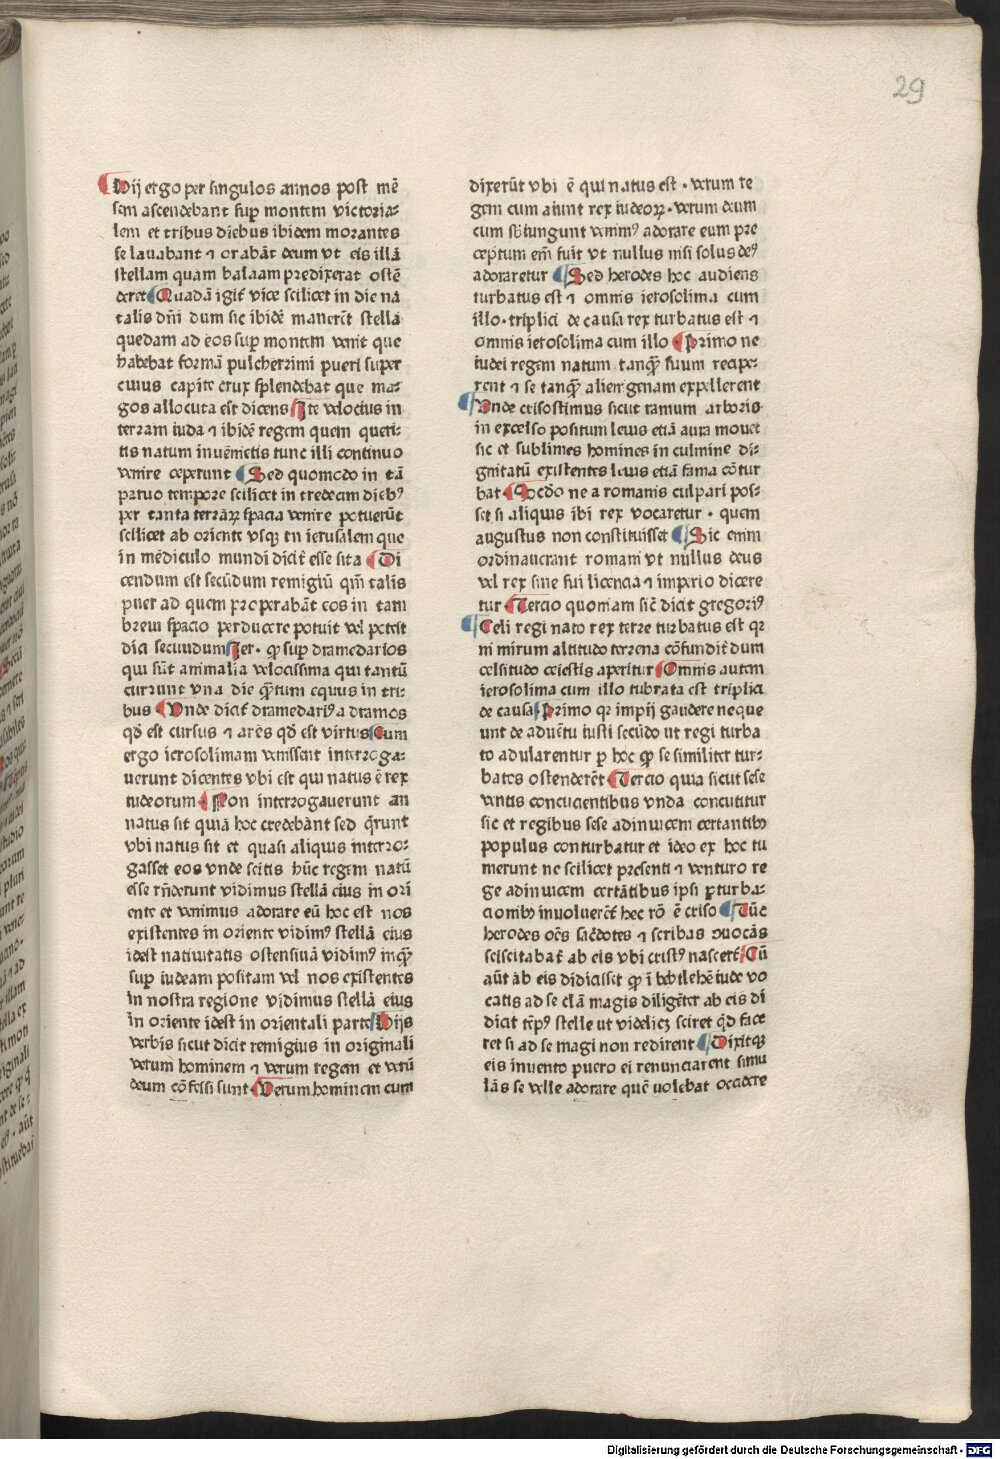 29
Hij ergo per singulos annos post mē
sem ascendebant sup montem victoria⸗
lem et tribus diebus ibidem morantes
se lavabant ⁊ orabāt deum vt eis illā
stellam quam balaam predixerat ostē
deret Quadā igit̄ vice scilicet in die na
talis dn̄i dum sic ibidē manerēt stella
quedam ad eos sup montem venit que
habebat formā pulcherrimi pueri super
cuius capite crux splendebat que ma⸗
gos allocuta est dicens Ite velocius in
terram iuda ⁊ ibidē regem quem queri⸗
tis natum inuēnietis tunc illi continuo
venire ceperunt Sed quomodo in tā
paruo tempore scilicet in tredecim diebꝰ
per tanta terraꝝ spacia venire potuerūt
scilicet ab oriente vsqꝫ in ierusalem que
in mēdiculo mundi dicit̄ esse sita Di
cendum est secūdum remigiū qm̄ talis
puer ad quem properabāt eos in tam
breui spacio perducere potuit vel potest
dici secundum Jer· ꝙ sup dramedarios
qui sūt animalia velocissima qui tantū
currunt vna die q̄ȝtum equus in tri⸗
bus Vnde dicit̄ dramedariꝰ a dramos
qd̄ est cursus ⁊ ares qd̄ est virtus Cum
ergo ierosolimam venissent interroga⸗
uerunt dicentes vbi est qui natus ē rex
iudeorum Non interrogauerunt an
natus sit quia hoc credebant sed q̄runt
vbi natus sit et quasi aliquis interro⸗
gasset eos vnde scitis hūc regem natū
esse rn̄derunt vidimus stellā eius in ori
ente et venimus adorare eū hoc est nos
existentes in oriente vidimꝰ stellā eius
idest natiuitatis ostensiuā vidimꝰ inq̄ȝ
sup iudeam positam vel nos existentes
in nostra regione vidimus stellā eius
in oriente idest in orientali parte Hijs
verbis sicut dicit remigius in originali
verum hominem ⁊ verum regem et verū
deum cōfessi sunt Verum hominem cum
dixerūt vbi ē qui natus est · verum re
gem cum aiunt rex iudeoꝝ · verum deum
cum sb̄iungunt venimꝰ adorare eum pre
ceptum em̄ fuit vt nullus nisi solus deꝰ
adoraretur Sed herodes hoc audiens
turbatus est ⁊ omnis ierosolima cum
illo · triplici de causa rex turbatus est ⁊
omnis ierosolima cum illo Primo ne
iudei regem natum tanq̄ȝ suum recipe⸗
rent ⁊ se tanq̄ȝ alienigenam expellerent
Vnde crisostimus sicut ramum arboris
in excelso positum leuis etiā aura mouet
sic et sublimes homines in culmine di⸗
gnitatū existentes leuis etiā fama cōtur
bat Scd̄o ne a romanis culpari pos⸗
set si aliquis ibi rex vocaretur · quem
augustus non constituisset Sic enim
ordinauerant romani vt nullus deus
vel rex sine sui licencia ⁊ imperio dicere
tur Tercio quoniam sic̄ dicit gregoriꝰ
Celi regi nato rex terre turbatus est qr
ni mirum altitudo terrena cōfundit̄ dum
celsitudo celestis aperitur Omnis autem
ierosolima cum illo tubrata est triplici
de causa Primo qr impij gaudere neque
unt de aduētu iusti secūdo ut regi turba
to adularentur ꝑ hoc ꝙ se similiter tur⸗
batos ostenderēt Tercio quia sicut sese
ventis concucientibus vnda concutitur
sic et regibus sese adinuicem certantibꝫ
populus conturbatur et ideo ex hoc tu
merunt ne scilicet presenti ⁊ venturo re
ge adinuicem certātibus ipsi ꝑturba⸗
cionibꝫ inuoluerēt̄ hec rō ē criso Tūc
herodes oēs sac̄dotes ⁊ scribas ꝯuocās
sciscitabat̄ ab eis vbi cristꝰ nasceret̄ Cū
aūt ab eis didicisset ꝙ ī bethlehē iude vo
catis ad se clā magis diligēter ab eis di
dicit tēpꝰ stelle ut videlicꝫ sciret qd̄ face
ret si ad se magi non redirent Dixitqꝫ
eis inuento puero ei renunciarent simu
lās se velle adorare quē uolebat occidere
Digitalisierung gefördert durch die Deutsche Forschungsgemeinschaft - DFG